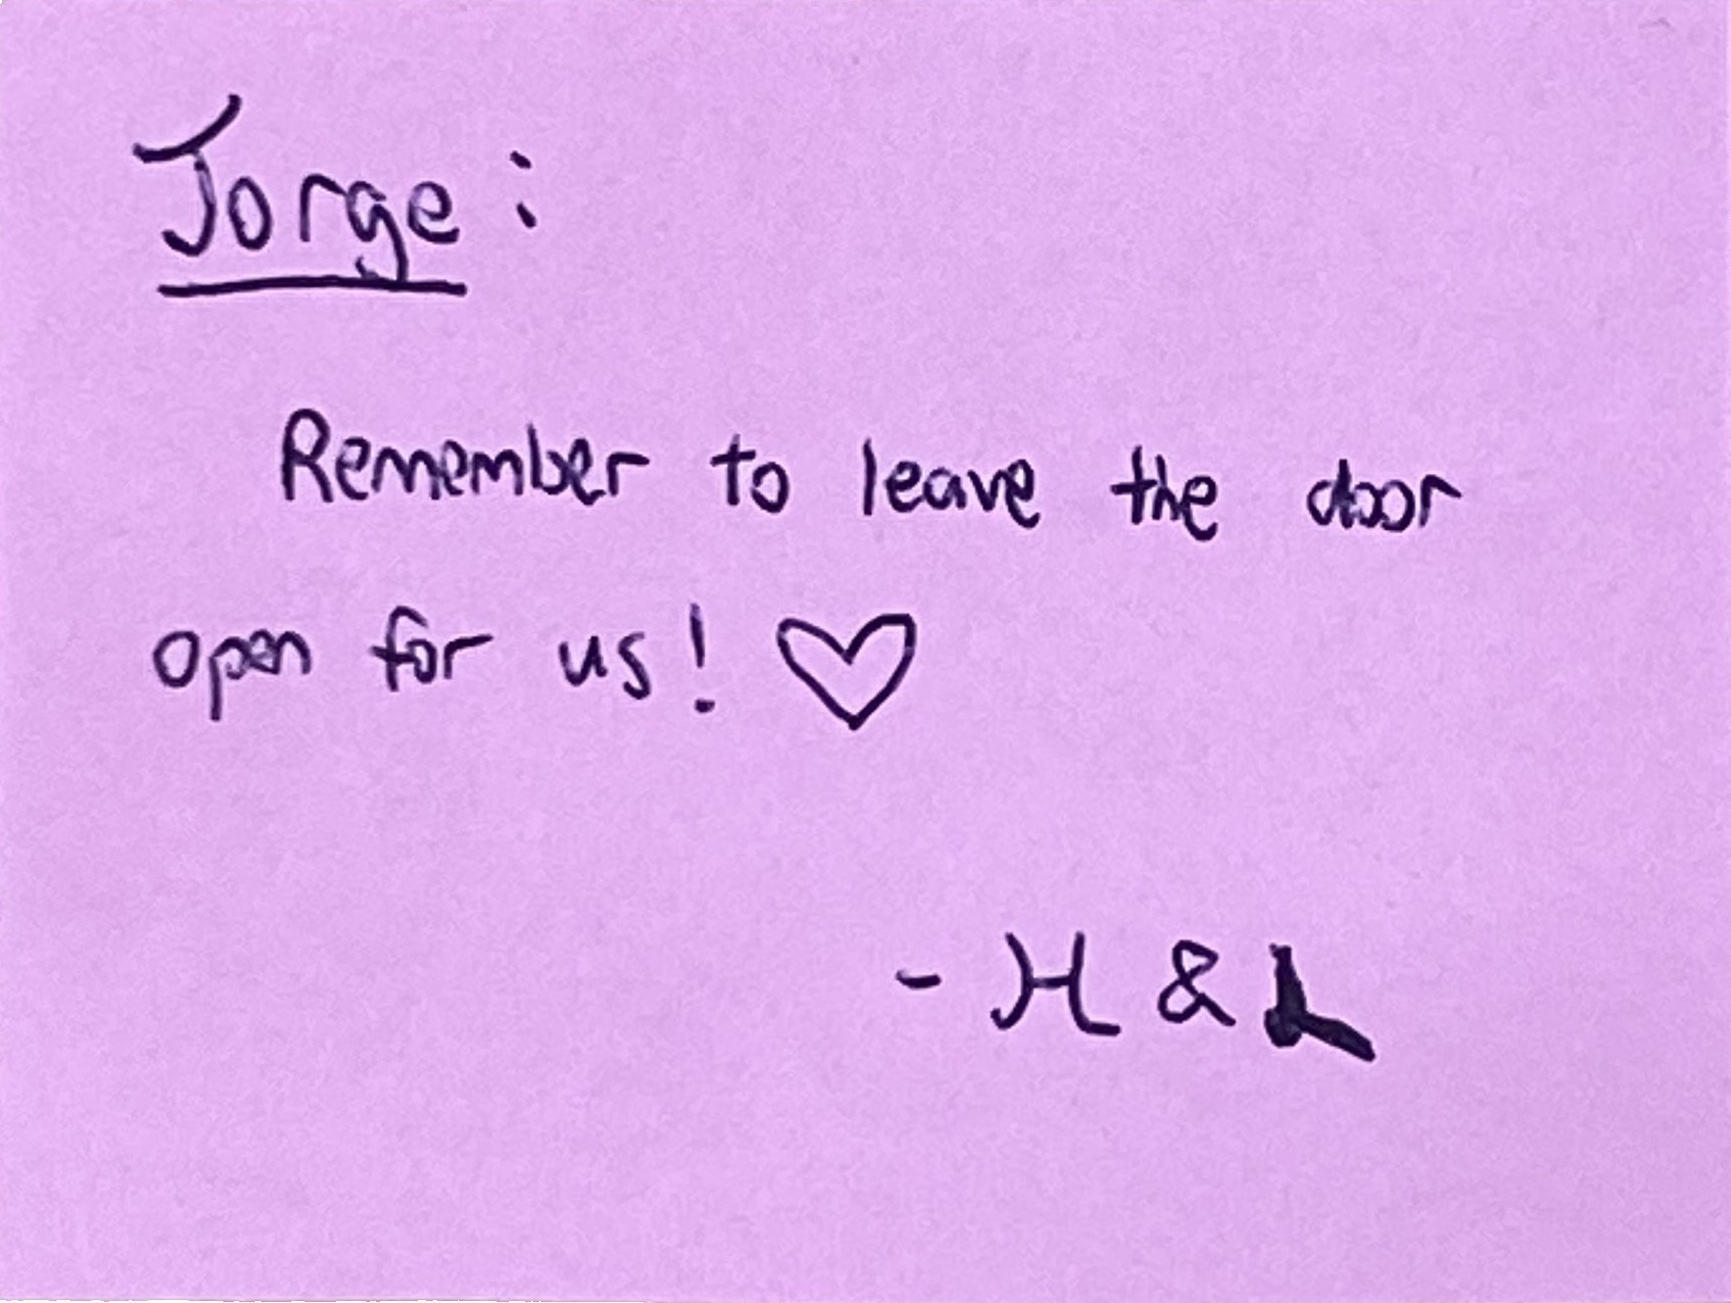 Jorge:
Remember to leave the door
open for us! ♡
- H & L